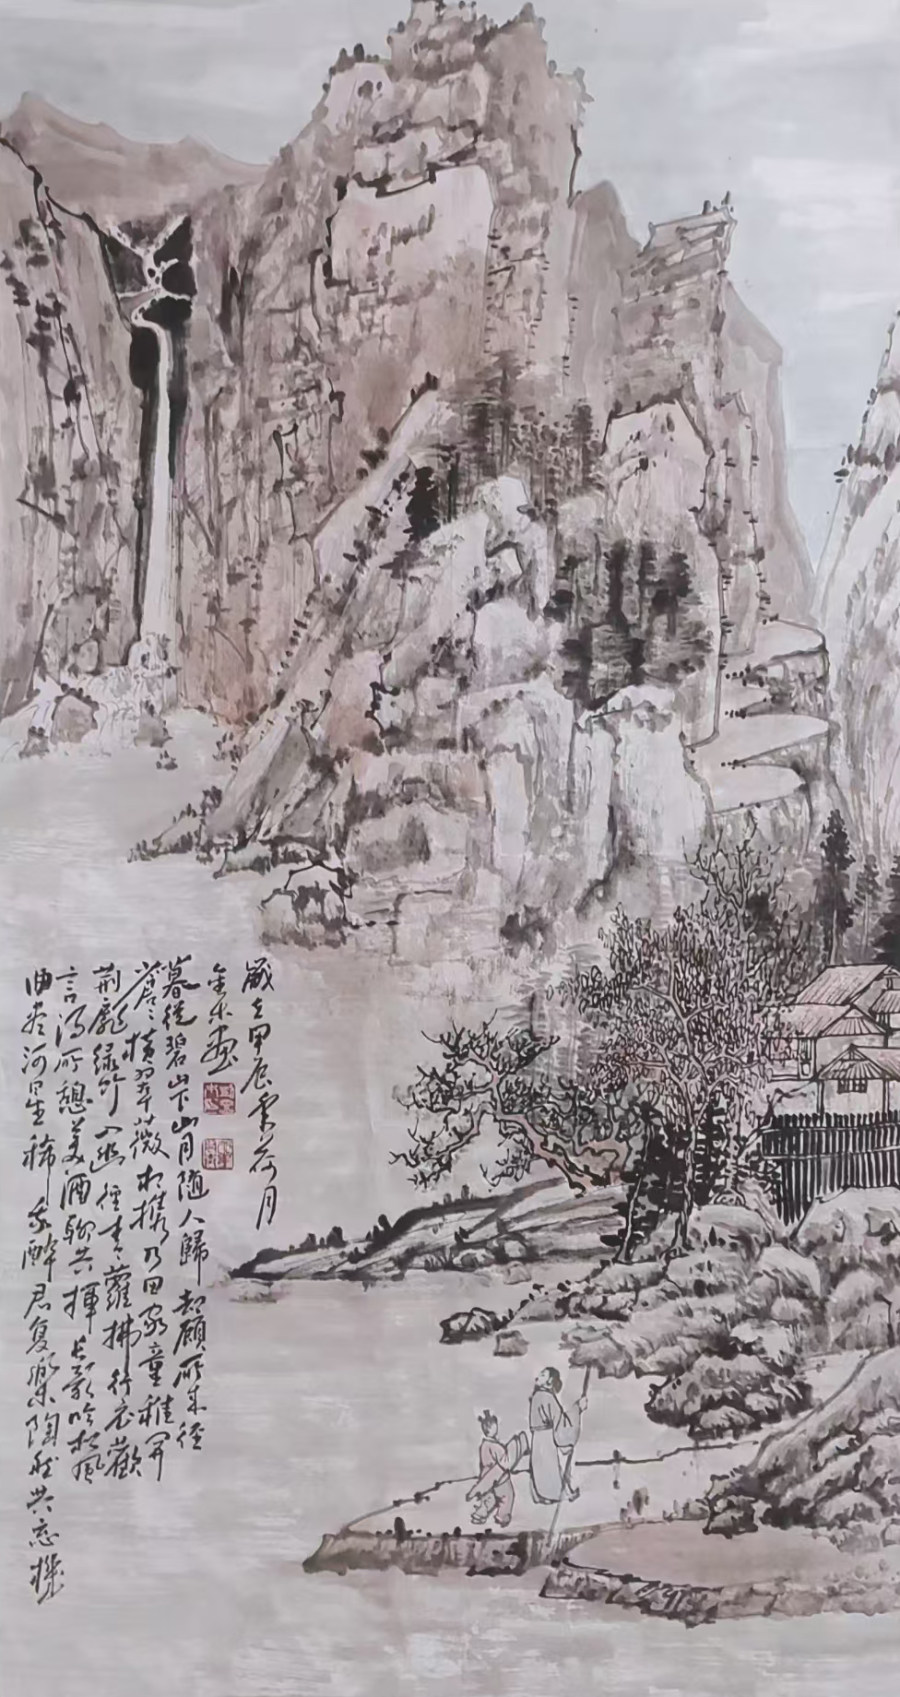 歲在甲辰荷月
画
暮從碧山下山月隨人歸却顧所來徑
蒼〻橫翠薇相攜及田家童稚開
荊扉綠竹入幽徑青蘿拂行衣歡
言得所憩美酒聊共揮長歌吟松風
曲盡河星稀我醉君復樂陶然共忘機